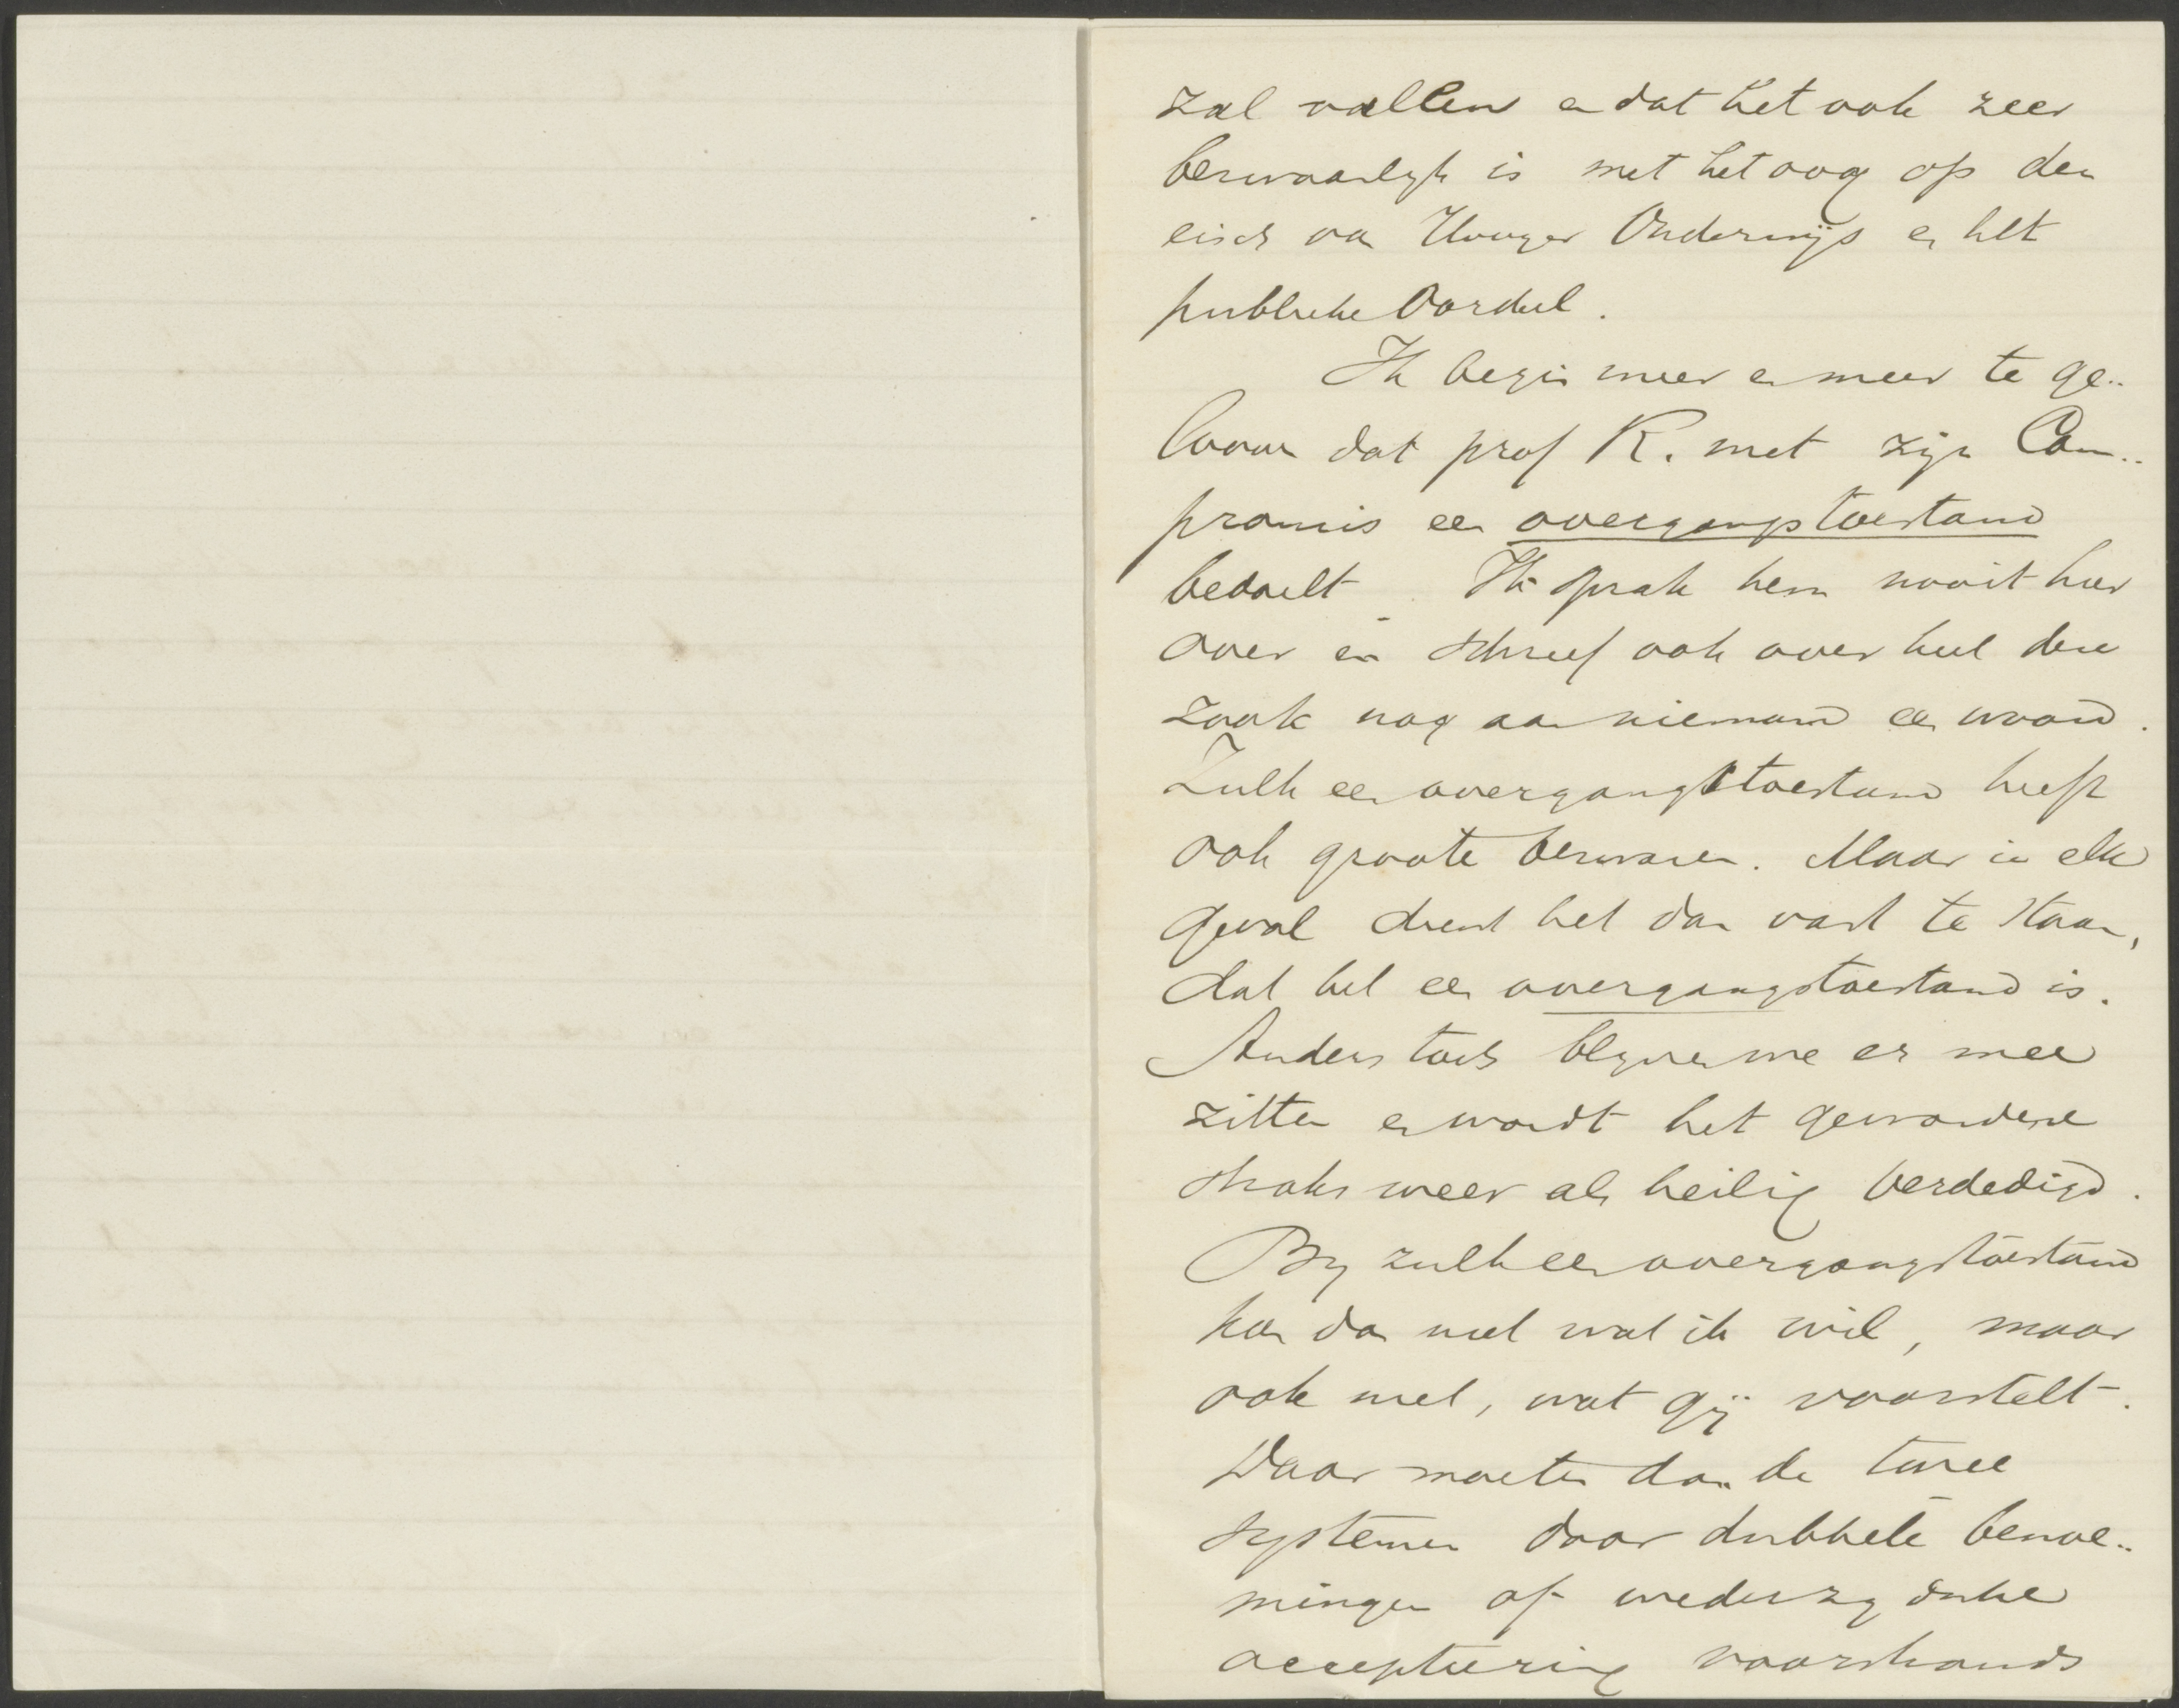 zal vallen en dat het ook zeer
bezwaarlijk is met het oog op den
eisch van Hooger Onderwijs en het
publieke Oordeel.
Ik begin meer en meer te ge-
looven dat prof R. met zijn Com-
promis een overgangstoestand
bedoelt. Ik sprak hem nooit hier
over en schreef ook over heel deze
zaak nog aan niemand een woord.
Zulk een overgangstoestand heeft
ook groote bezwaren. Maar in elk
geval dient het dan vast te staan,
dat het een overgangstoestand is.
Anders toch blijven we er mee
zitten en wordt het gewordene
straks weer als heilig verdedigd.
Bij zulk een overgangstoestand
kan dan niet wat ik wil, maar
ook niet, wat gij voorstelt.
Daar moeten dan de twee
systemen door dubbele benoe-
mingen of wederzijdsche
accepteering voorshands